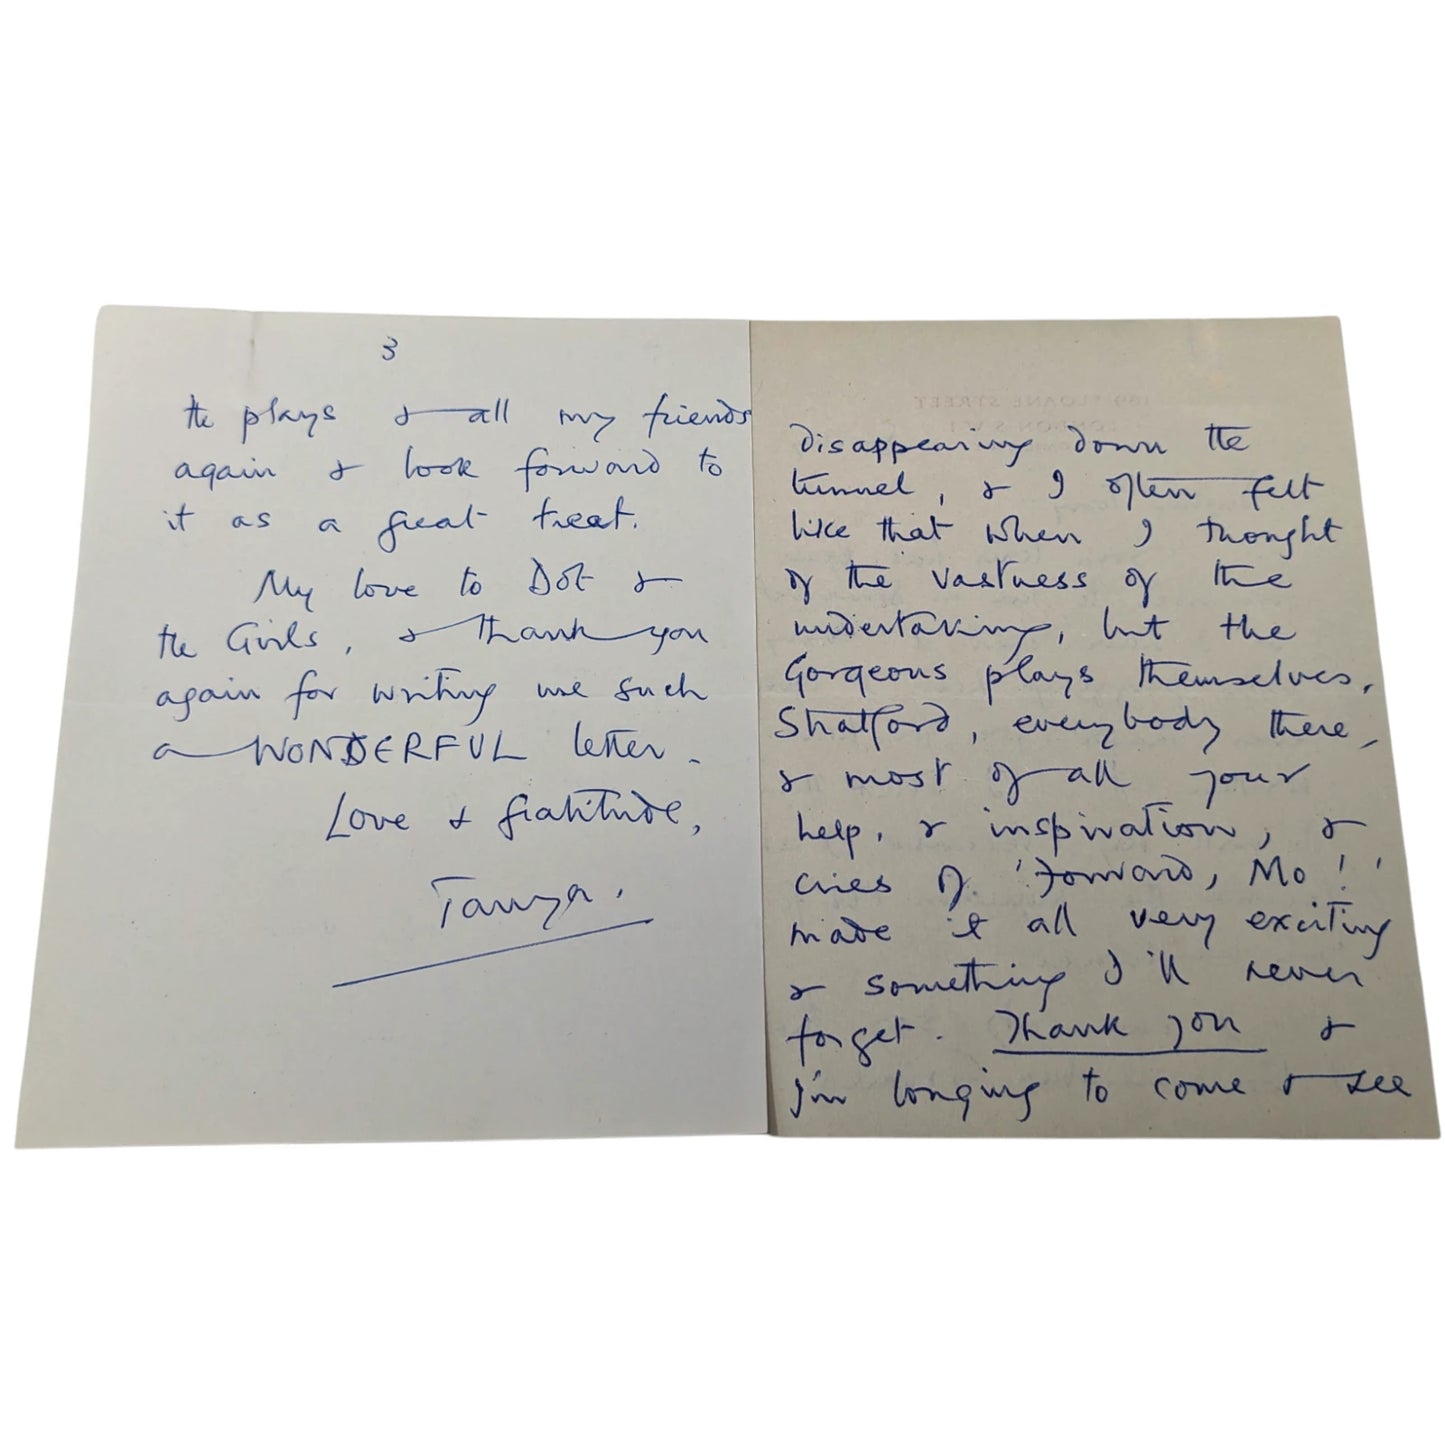 3
the plays & all my friends
again & look forward to
it as a great treat.
My love to Dot &
the Girls, & thank you
again for writing me such
a WONDERFUL letter.
Love & Gratitude,
Tanya.
disappearing down the
tunnel, & I often felt
like that when I thought
of the vastness of the
undertaking, but the
Gorgeous plays themselves,
Stratford, everybody there,
& most of all your
help, & inspiration, &
cries of 'Forward, Mo!'
made it all very exciting
& something I'll never
forget. Thank you &
I'm longing to come & see